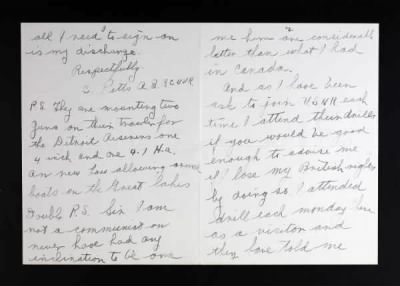 me home are considerable
better than what I had
in Canada.
And so I have been
ask to join USNR each
time I attend their drills
if you would be good
enough to advise me
if I lose my British rights
by doing so. I attended
drill each monday here
as a visitor and
they have told me
all I need to sign on
is my discharge.
Respectfully
Pitts A.B. RCNVR
P.S. They are mounting two
guns on their trawler for
the Detroit Reserves one
4 inch and one 4.1 H.A.
on new laws allowing armed
boats on the Great Lakes
Double P.S. Sir I am
not a communist or
never have had any
inclination to be one